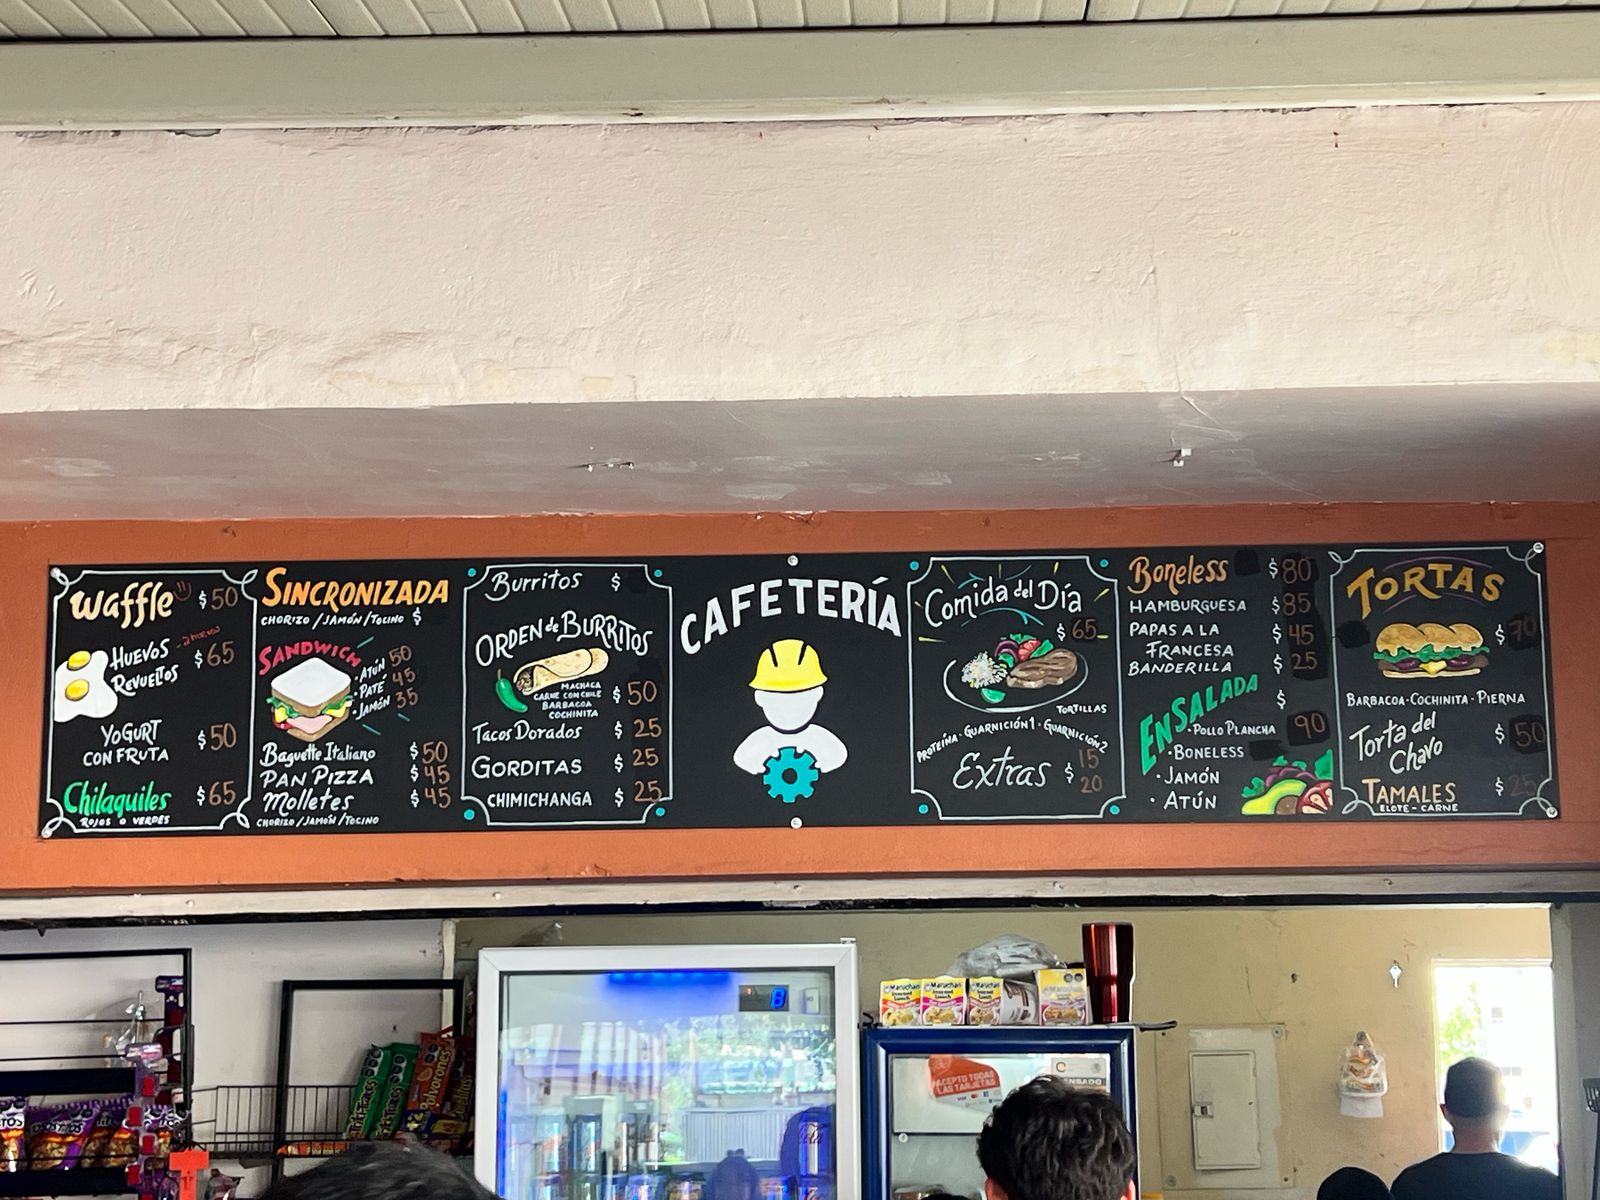 Waffle $50
2 huevos
HUEVOS REVUELTOS $65
YOGURT CON FRUTA $50
Chilaquiles $65
ROJOS O VERDES
SINCRONIZADA
CHORIZO / JAMÓN / TOCINO $
SANDWICH
· ATÚN 50
· PATÉ 45
· JAMÓN 35
Baguette Italiano $50
PAN PIZZA $45
Molletes $45
CHORIZO / JAMÓN / TOCINO
Burritos $
ORDEN de BURRITOS
MACHACA
CARNE CON CHILE
BARBACOA
COCHINITA
$50
Tacos Dorados $25
GORDITAS $25
CHIMICHANGA $25
CAFETERÍA
Comida del Día
$65
TORTILLAS
PROTEÍNA · GUARNICIÓN 1 · GUARNICIÓN 2
Extras $15
20
Boneless $80
HAMBURGUESA $85
PAPAS A LA FRANCESA $45
BANDERILLA $25
ENSALADA $
· POLLO PLANCHA 90
· BONELESS
· JAMÓN
· ATÚN
TORTAS
$70
BARBACOA · COCHINITA · PIERNA
Torta del Chavo $50
TAMALES $25
ELOTE - CARNE
8
Maruchan
Maruchan
Maruchan
ACEPTO TODAS
LAS TARJETAS